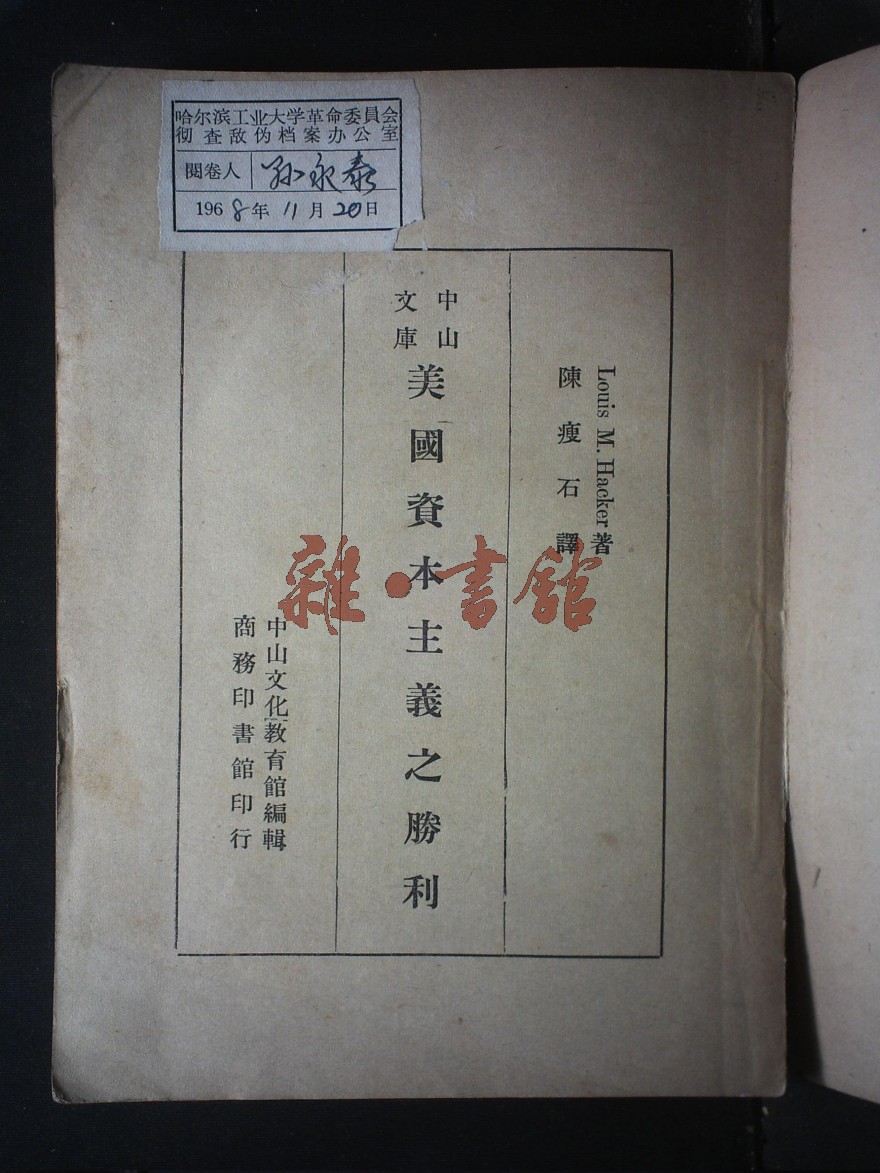 哈尔滨工业大学革命委員会
彻查敌伪档案办公室
閱卷人 孙永泰
1968年11月20日
Louis M. Hacker著
陳瘦石譯
中山
文庫
美國資本主義之勝利
中山文化教育館編輯
商務印書館印行
雜·書館